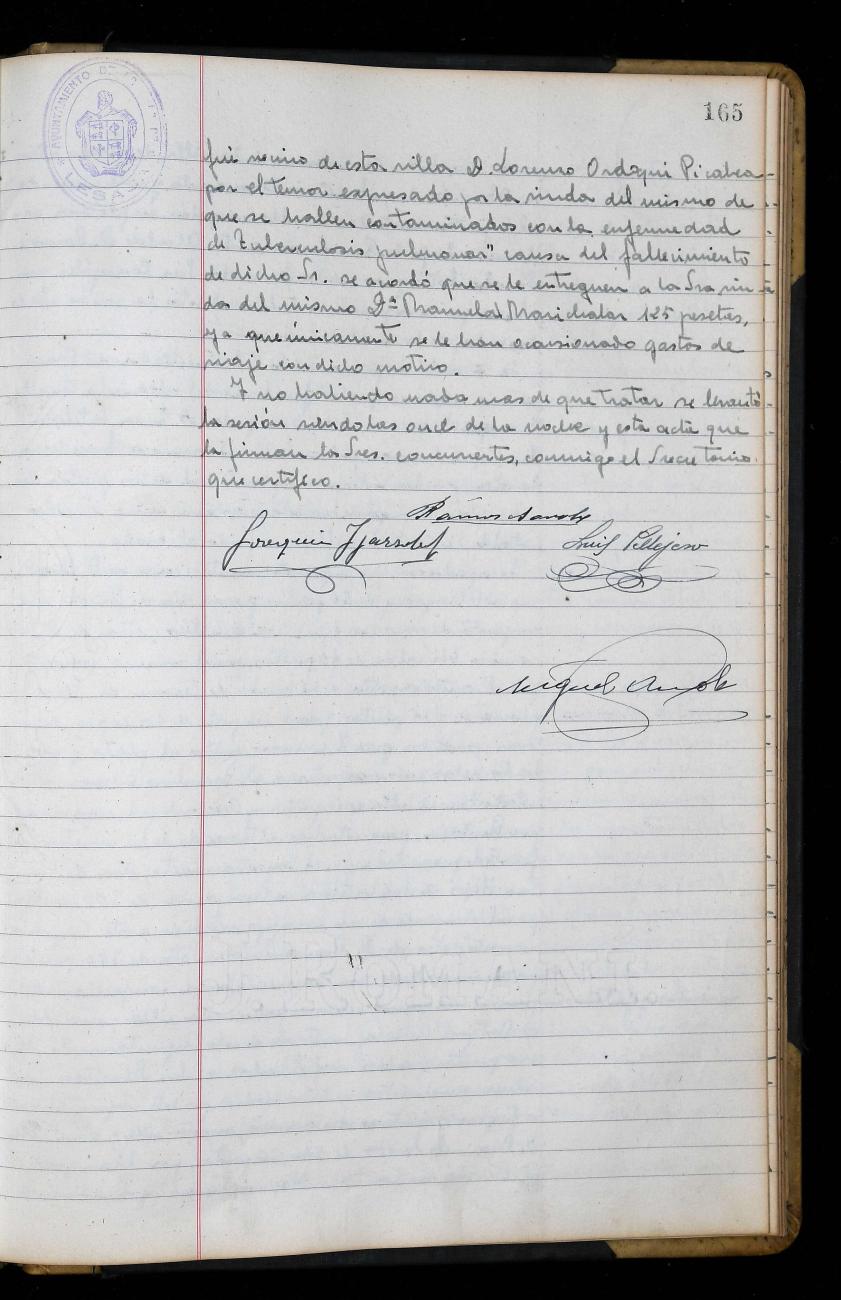 165
AYUNTAMIENTO DE
LESACA
fué vecino de esta villa D. Lorenzo Ordoqui Picabea
por el temor expresado por la viuda del mismo de
que se hallen contaminados con la enfermedad
de Tuberculosis pulmonar" causa del fallecimiento
de dicho Sr. se acordó que se le entreguen a la Sra viu-
da del mismo Dª Manuela Marichalar 125 pesetas,
ya que únicamente se le han ocasionado gastos de
viaje con dicho motivo.
Y no habiendo nada mas de que tratar se levantó
la sesión siendo las once de la noche y esta acta que
la firman los Sres. concurrentes, conmigo el Secretario
que certifico.
Ramos
Joaquin
Luis Pellejero
Miguel